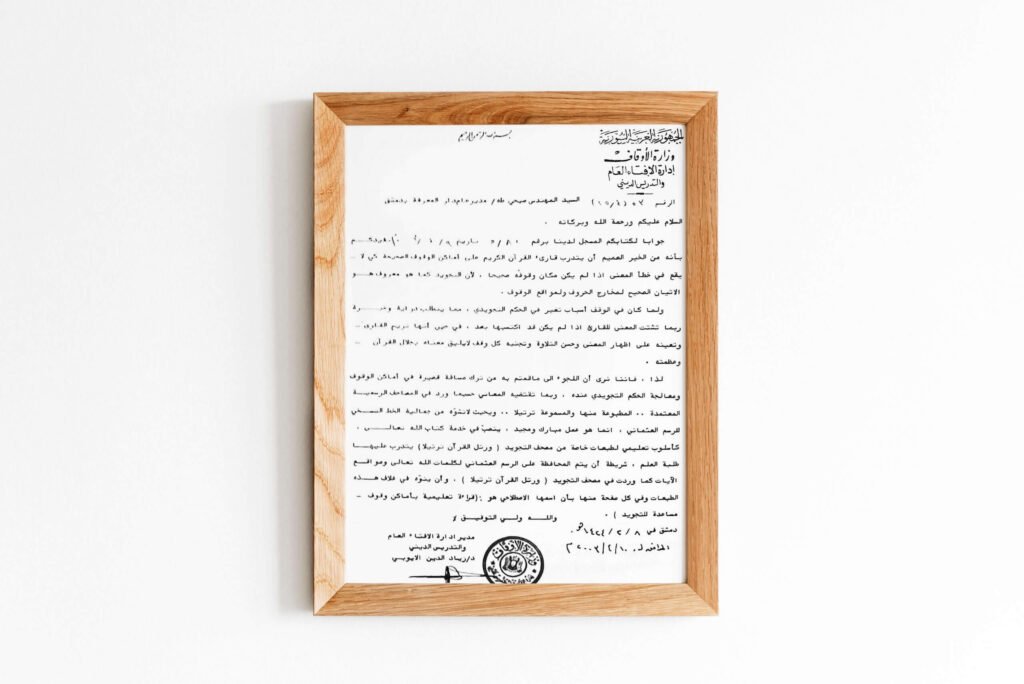 بسم الله الرحمن الرحيم
الجمهورية العربية السورية
وزارة الأوقاف
إدارة الافتاء العام
والتدريس الديني
الرقم السيد المهندس صبحي طه / مدير عام دار المعرفة بدمشق
السلام عليكم ورحمة الله وبركاته .
جوابا لكتابكم المسجل لدينا برقم تاريخ نفيدكم
بأنه من الخير العميم أن يتدرب قارىء القرآن الكريم على أماكن الوقوف الصحيحة كي لا -
يقع في خطأ المعنى اذا لم يكن مكان وقوفه صحيحا ، لأن التجويد كما هو معروف هو
الاتيان الصحيح لمخارج الحروف ولمواقع الوقوف .
ولما كان في الوقف أسباب تغير في الحكم التجويدي ، مما يتطلب دراية وخبرة
ربما تشتت المعنى للقارئ اذا لم يكن قد اكتسبها بعد ، في حين أنها تريح القارئ -
وتعينه على اظهار المعنى وحسن التلاوة وتجنبه كل وقف لايليق معناه بجلال القرآن -
وعظمته .
لذا ، فاننا نرى أن اللجوء الى ماقمتم به من ترك مسافة قصيرة في أماكن الوقوف
ومعالجة الحكم التجويدي عنده ، وبما تقتضيه المعاني حسبما ورد في المصاحف الرسمية
المعتمدة .. المطبوعة منها والمسموعة ترتيلا .. وبحيث لاتشوّه من جمالية الخط النسخي
للرسم العثماني ، انما هو عمل مبارك ومجيد ، ينصبّ في خدمة كتاب الله تعالى ،
كأسلوب تعليمي لطبعات خاصة من مصحف التجويد ( ورتل القرآن ترتيلا ) يتدرب عليها
طلبة العلم ، شريطة أن يتم المحافظة على الرسم العثماني لكلمات الله تعالى ومواقع
الآيات كما وردت في مصحف التجويد ( ورتل القرآن ترتيلا ) ، وأن ينوّه في غلاف هذه
الطبعات وفي كل صفحة منها بأن اسمها الاصطلاحي هو :(قراءة تعليمية بأماكن وقوف -
مساعدة للتجويد ) .
والله ولي التوفيق
دمشق في ١٤٢٤/٢/٨هـ
الموافق لـ ٢٠٠٣/٤/١٠م
مدير ادارة الافتاء العام
والتدريس الديني
د/زياد الدين الايوبي
وزارة الأوقاف